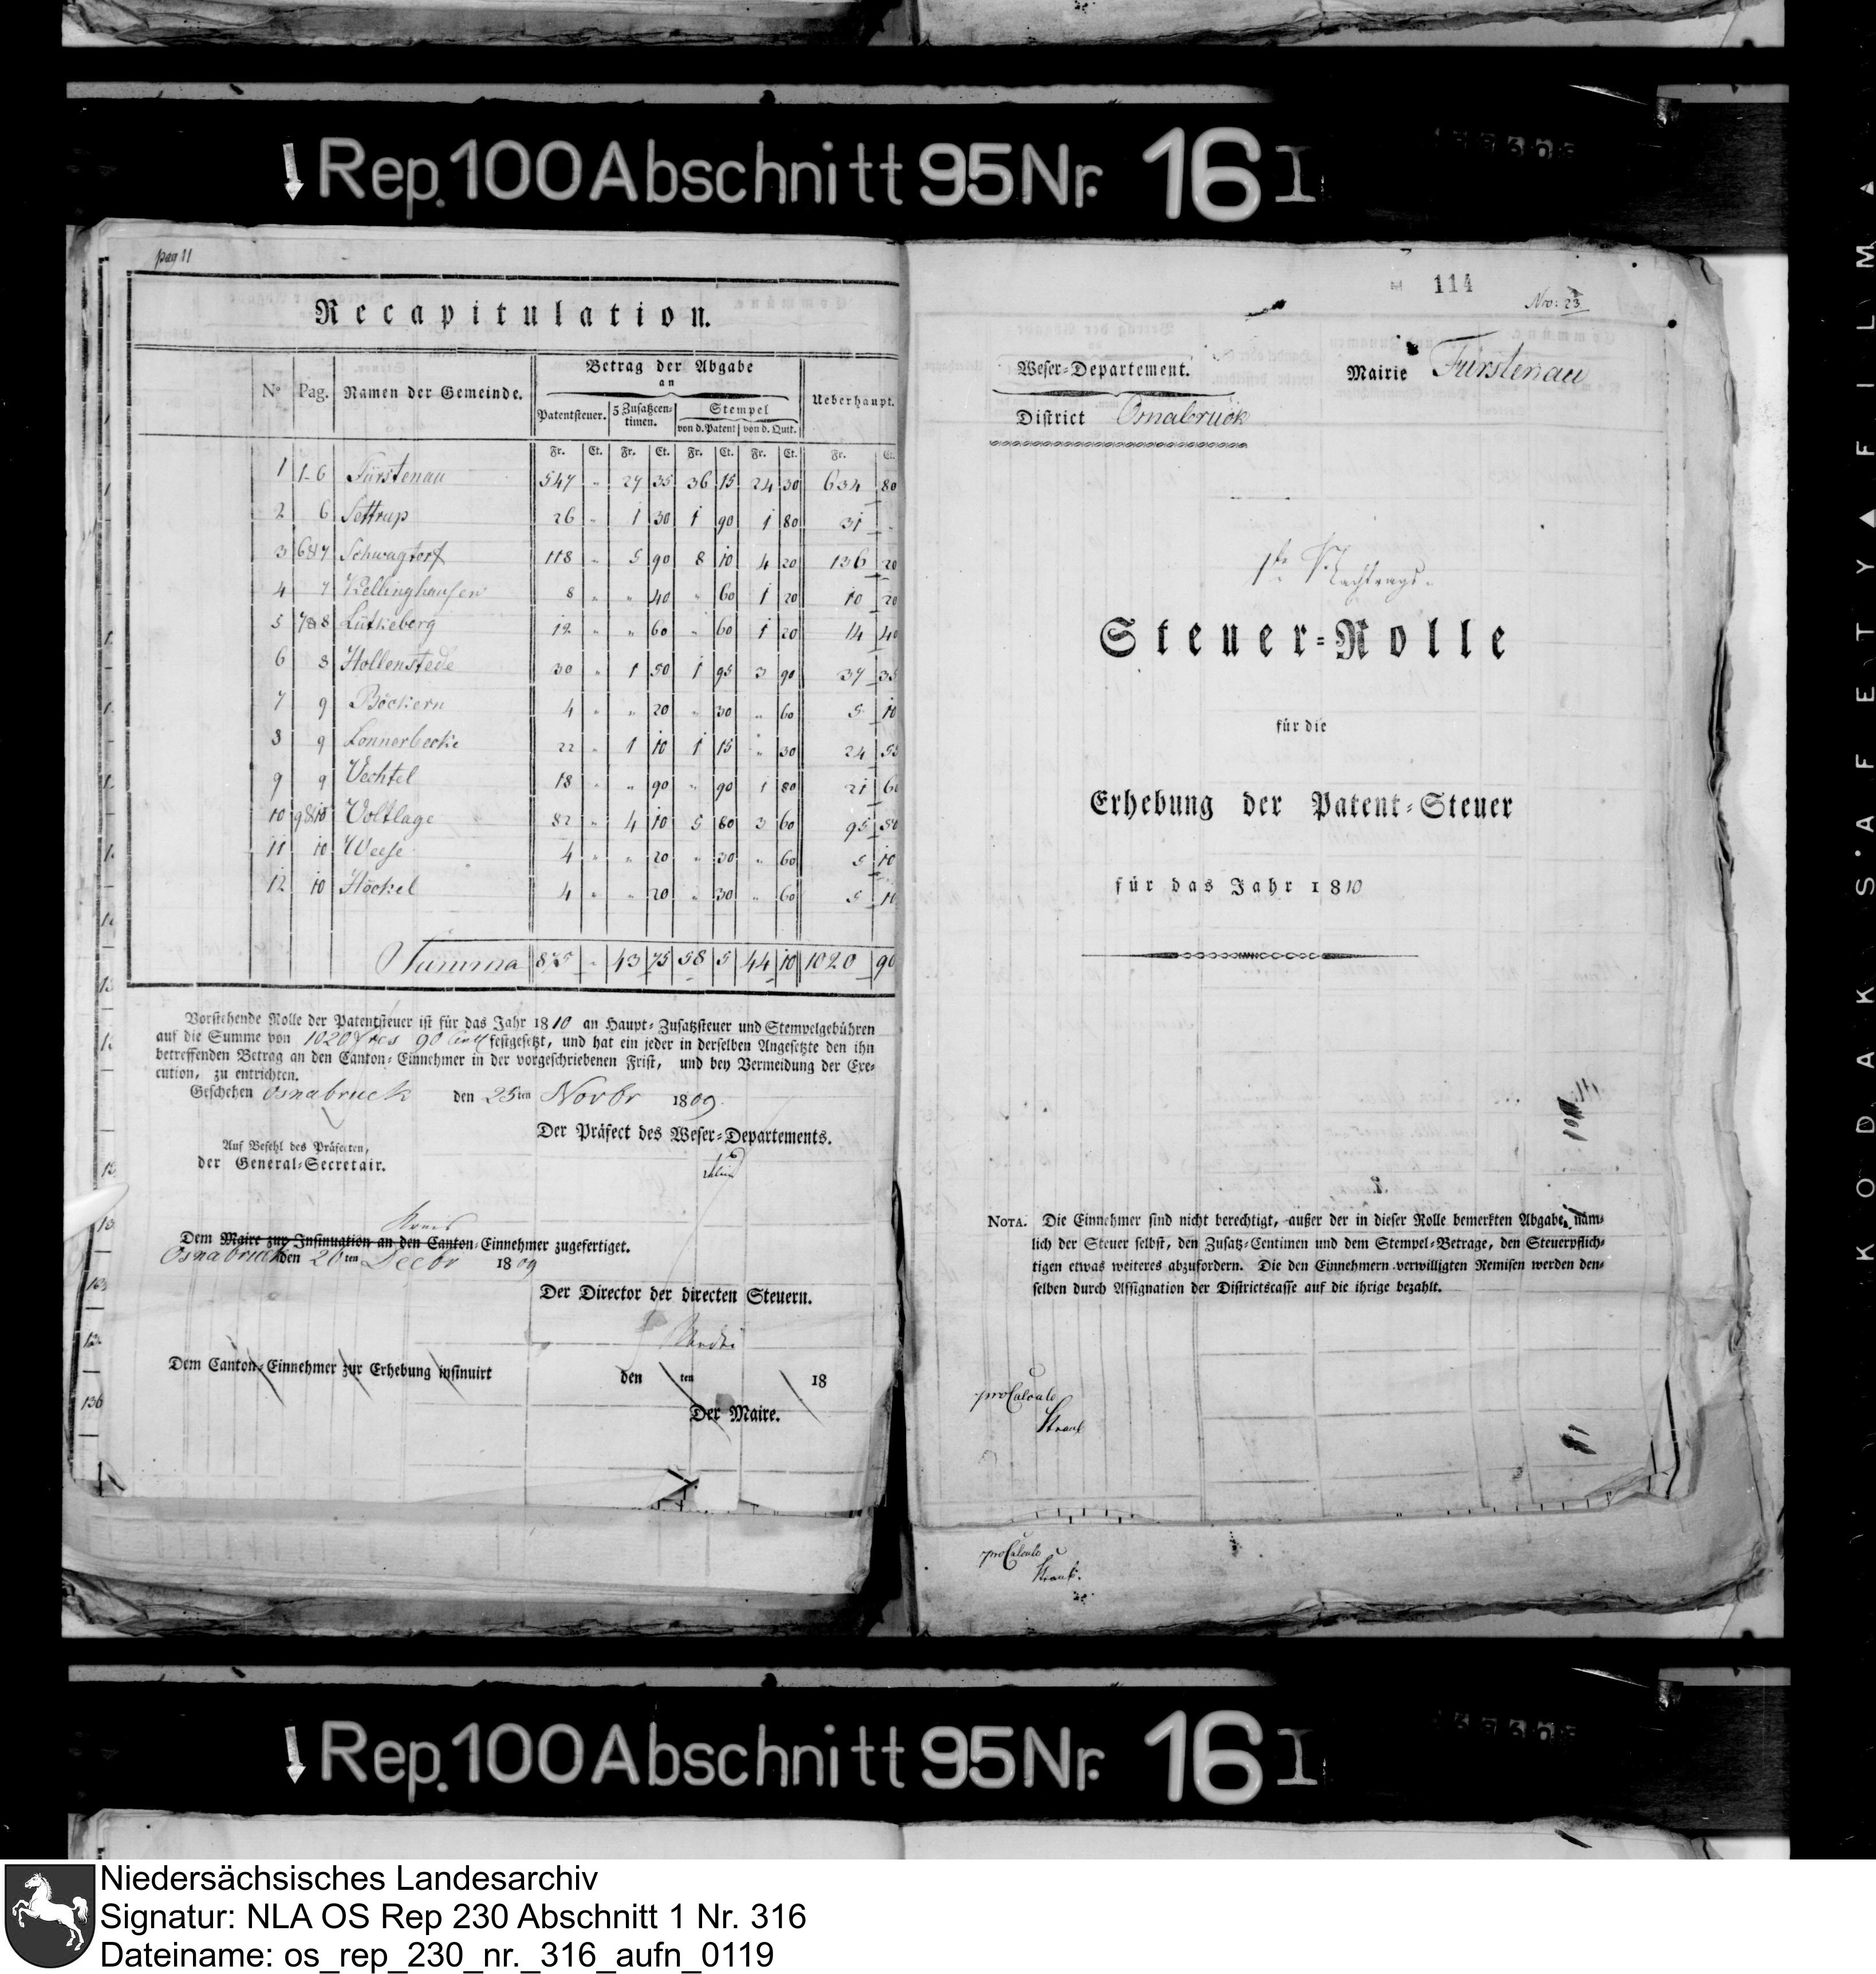 Rep. 100 Abschnitt 95 Nr. 16 I
pag 11
Recapitulation.
N° Pag. Namen der Gemeinde. Betrag der Abgabe an Ueberhaupt.
Patentsteuer. 5 Zusatzcen-timen. Stempel
von d. Patent von d. Quit.
Fr. Ct. Fr. Ct. Fr. Ct. Fr. Ct. Fr. Ct.
1 1-6 Fürstenau 547 " 27 35 36 15 24 30 634 80
2 6 Settrup 26 " 1 30 1 90 1 80 31 "
3 6&7 Schwagtorf 118 " 5 90 8 10 4 20 136 20
4 7 Kellinghausen 8 " " 40 " 60 1 20 10 20
5 7&8 Lütkeberg 12 " " 60 " 60 1 20 14 40
6 8 Hollenstede 30 " 1 50 1 95 3 90 37 35
7 9 Böckern 4 " " 20 " 30 " 60 5 10
8 9 Lonnerbecke 22 " 1 10 1 15 " 30 24 55
9 9 Vechtel 18 " " 90 " 90 1 80 21 60
10 9&10 Voltlage 82 " 4 10 5 80 3 60 95 50
11 10 Weese 4 " " 20 " 30 " 60 5 10
12 10 Höckel 4 " " 20 " 30 " 60 5 10
Summa 875 " 43 75 58 5 44 10 1020 90
Vorstehende Rolle der Patentsteuer ist für das Jahr 1810 an Haupt- Zusatzsteuer und Stempelgebühren
auf die Summe von 1020 frcs 90 Cent festgesetzt, und hat ein jeder in derselben Angesetzte den ihn
betreffenden Betrag an den Canton-Einnehmer in der vorgeschriebenen Frist, und bey Vermeidung der Exe-
cution, zu entrichten.
Geschehen Osnabruck den 25ten Novbr 1809.
Der Präfect des Weser-Departements.
Auf Befehl des Präfecten,
der General-Secretair.
Kreis
Dem Maire zur Insinuation an den Canton-Einnehmer zugefertiget.
Osnabruck den 26ten Decbr 1809
Der Director der directen Steuern.
Dem Canton-Einnehmer zur Erhebung insinuirt den ten 18
Der Maire.
114
Nro: 23
Weser-Departement. Mairie Fürstenau
District Osnabrück
1te Nachtrags-
Steuer-Rolle
für die
Erhebung der Patent-Steuer
für das Jahr 1810
NOTA. Die Einnehmer sind nicht berechtigt, außer der in dieser Rolle bemerkten Abgabe, näm-
lich der Steuer selbst, den Zusatz-Centimen und dem Stempel-Betrage, den Steuerpflich-
tigen etwas weiteres abzufordern. Die den Einnehmern verwilligten Remisen werden den-
selben durch Assignation der Districtscasse auf die ihrige bezahlt.
pro Calculo
pro Calculo
KODAK SAFETY FILM
Rep. 100 Abschnitt 95 Nr. 16 I
Niedersächsisches Landesarchiv
Signatur: NLA OS Rep 230 Abschnitt 1 Nr. 316
Dateiname: os_rep_230_nr._316_aufn_0119